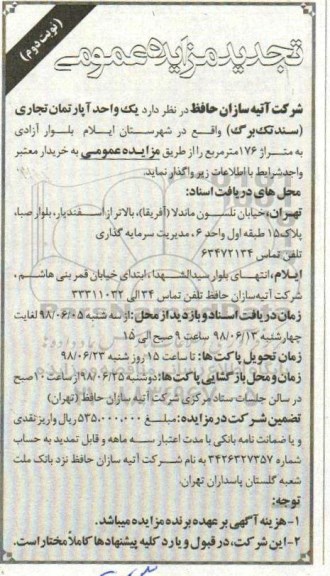 (نوبت دوم)
تجدید مزایده عمومی
شرکت آتیه سازان حافظ در نظر دارد یک واحد آپارتمان تجاری
(سند تک برگ) واقع در شهرستان ایلام بلوار آزادی
به متراژ ۱۷۶ متر مربع را از طریق مزایده عمومی به خریدار معتبر
واجد شرایط با اطلاعات زیر واگذار نماید.
محل های دریافت اسناد:
تهران، خیابان نلسون ماندلا (آفریقا)، بالاتر از اسفندیار، بلوار صبا،
پلاک ۱۵ طبقه اول واحد ۶، مدیریت سرمایه گذاری
تلفن تماس ۶۳۴۷۲۱۳۴
ایلام، انتهای بلوار سیدالشهدا، ابتدای خیابان قمر بنی هاشم،
شرکت آتیه سازان حافظ تلفن تماس ۳۴ الی ۳۳۳۱۱۰۳۲
زمان دریافت اسناد و بازدید از محل: از سه شنبه ۹۸/۰۶/۰۵ لغایت
چهارشنبه ۹۸/۰۶/۱۳ ساعت ۹ صبح الی ۱۵
زمان تحویل پاکت ها: تا ساعت ۱۵ روز شنبه ۹۸/۰۶/۲۳
زمان و محل بازگشایی پاکت ها: دوشنبه ۹۸/۰۶/۲۵ از ساعت ۱۰ صبح
در سالن جلسات ستاد مرکزی شرکت آتیه سازان حافظ (تهران)
تضمین شرکت در مزایده: مبلغ ۵۳۵،۰۰۰،۰۰۰ ریال واریز نقدی
و یا ضمانت نامه بانکی با مدت اعتبار سه ماهه و قابل تمدید به حساب
شماره ۳۴۲۶۳۲۷۳۵۷ به نام شرکت آتیه سازان حافظ نزد بانک ملت
شعبه گلستان پاسداران تهران.
توجه:
۱- هزینه آگهی بر عهده برنده مزایده میباشد.
۲- این شرکت، در قبول و یا رد کلیه پیشنهادها کاملاً مختار است.